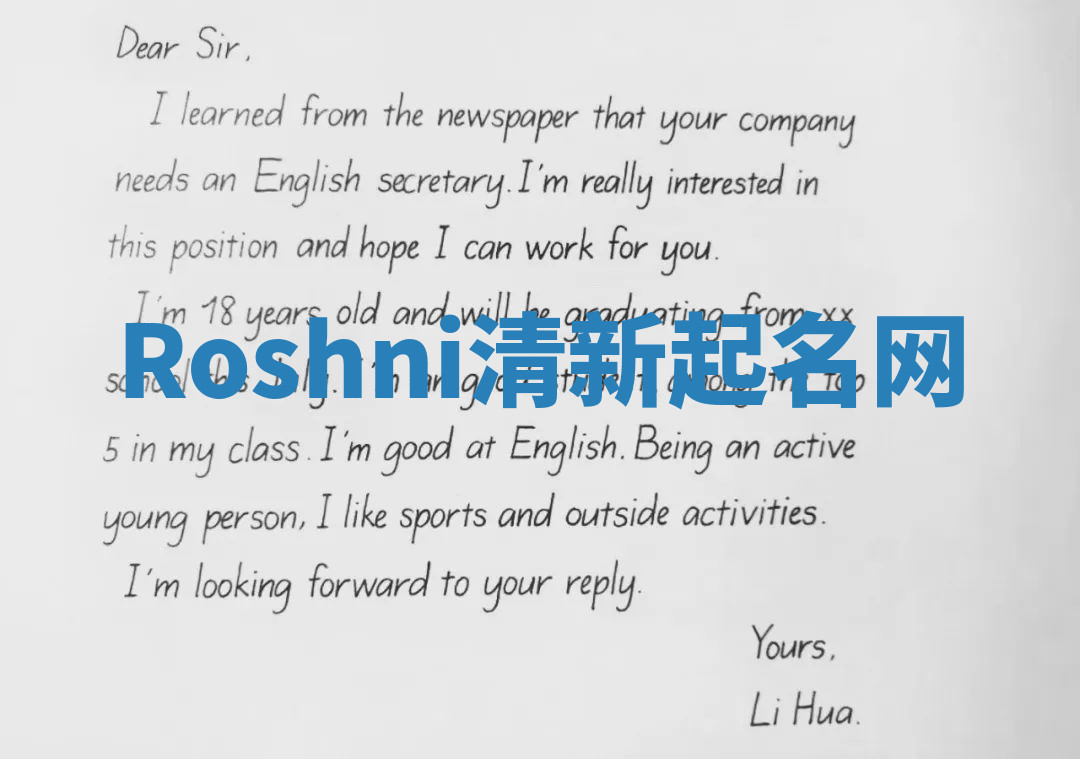 Dear Sir,
I learned from the newspaper that your company
needs an English secretary. I'm really interested in
this position and hope I can work for you.
I'm 18 years old and will be graduating from xx
Roshni清新起名网
school this July. I'm an among the top
5 in my class. I'm good at English. Being an active
young person, I like sports and outside activities.
I'm looking forward to your reply.
Yours,
Li Hua.